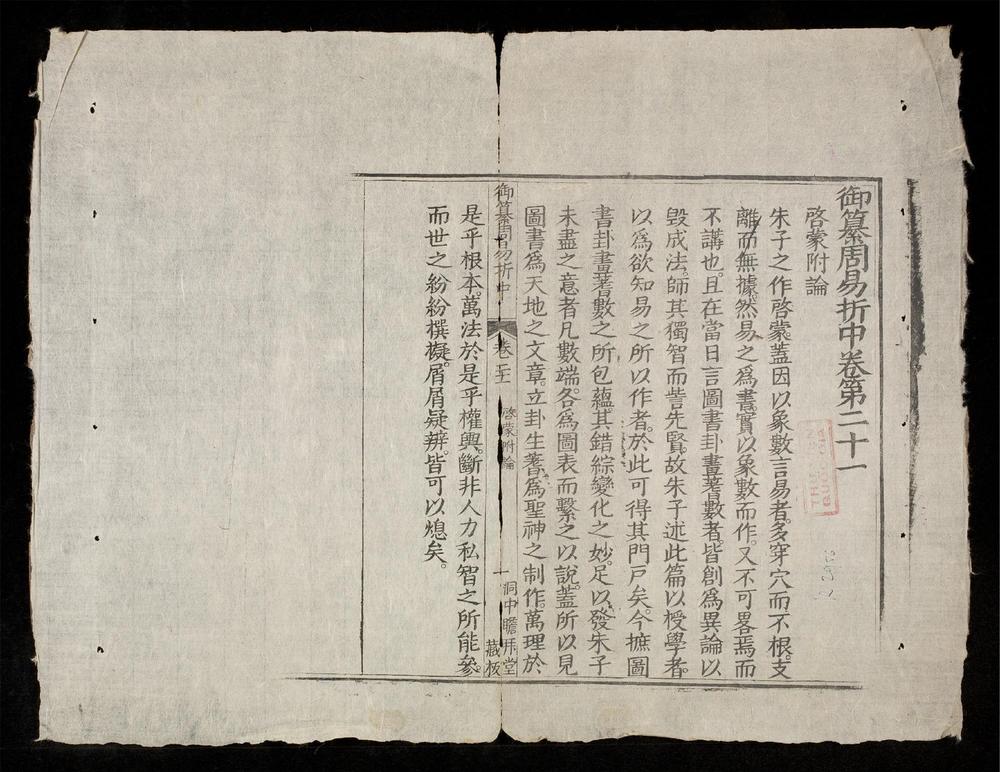 御纂周易折中卷第二十一
啓蒙附論
朱子之作啓蒙。蓋因以象數言易者。多穿穴而不根。支
離而無據。然易之爲書。實以象數而作。又不可畧焉而
不講也。且在當日言圖書卦畫蓍數者。皆創爲異論以
毀成法。師其獨智而訾先賢。故朱子述此篇以授學者。
以爲欲知易之所以作者。於此可得其門戸矣。今摭圖
書卦畫蓍數之所包蘊。其錯綜變化之妙。足以發朱子
未盡之意者凡數端。各爲圖表而繫之以說。蓋所以見
圖書爲天地之文章。立卦生蓍。爲聖神之制作。萬理於
御纂周易折中
卷二十一
啓蒙附論
一
洞中瞻拜堂
藏板
是乎根本。萬法於是乎權輿。斷非人力私智之所能參。
而世之紛紛撰擬。屑屑疑辨。皆可以熄矣。